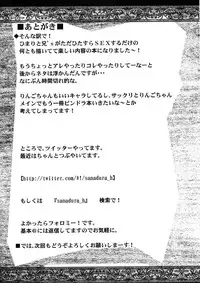 ■あとがき■
●そんな訳で!
ひまりと兄's がただひたすらSEXするだけの
何とも描いてて楽しい内容の本になりました~!
もうちょっとアレやったりコレやったりしてーなーと
後からネタは浮かんだんですが、
なにぶん時間切れ的な。
りんごちゃんもいいキャラしてるし、サックリとりんごちゃん
メインでもう一冊ピンドラ本いきたいな~とか
考えてしまってます!
ところで、ツイッターやってます。
最近はちゃんとつぶやいてます。
【http://twitter.com/#!/sanadura_h】
もしくは 『sanadura_h』 検索で!
よかったらフォロミー!です。
基本@には返信してますのでお気軽に。
■では、次回もどうぞよろしくお願いしまーす!